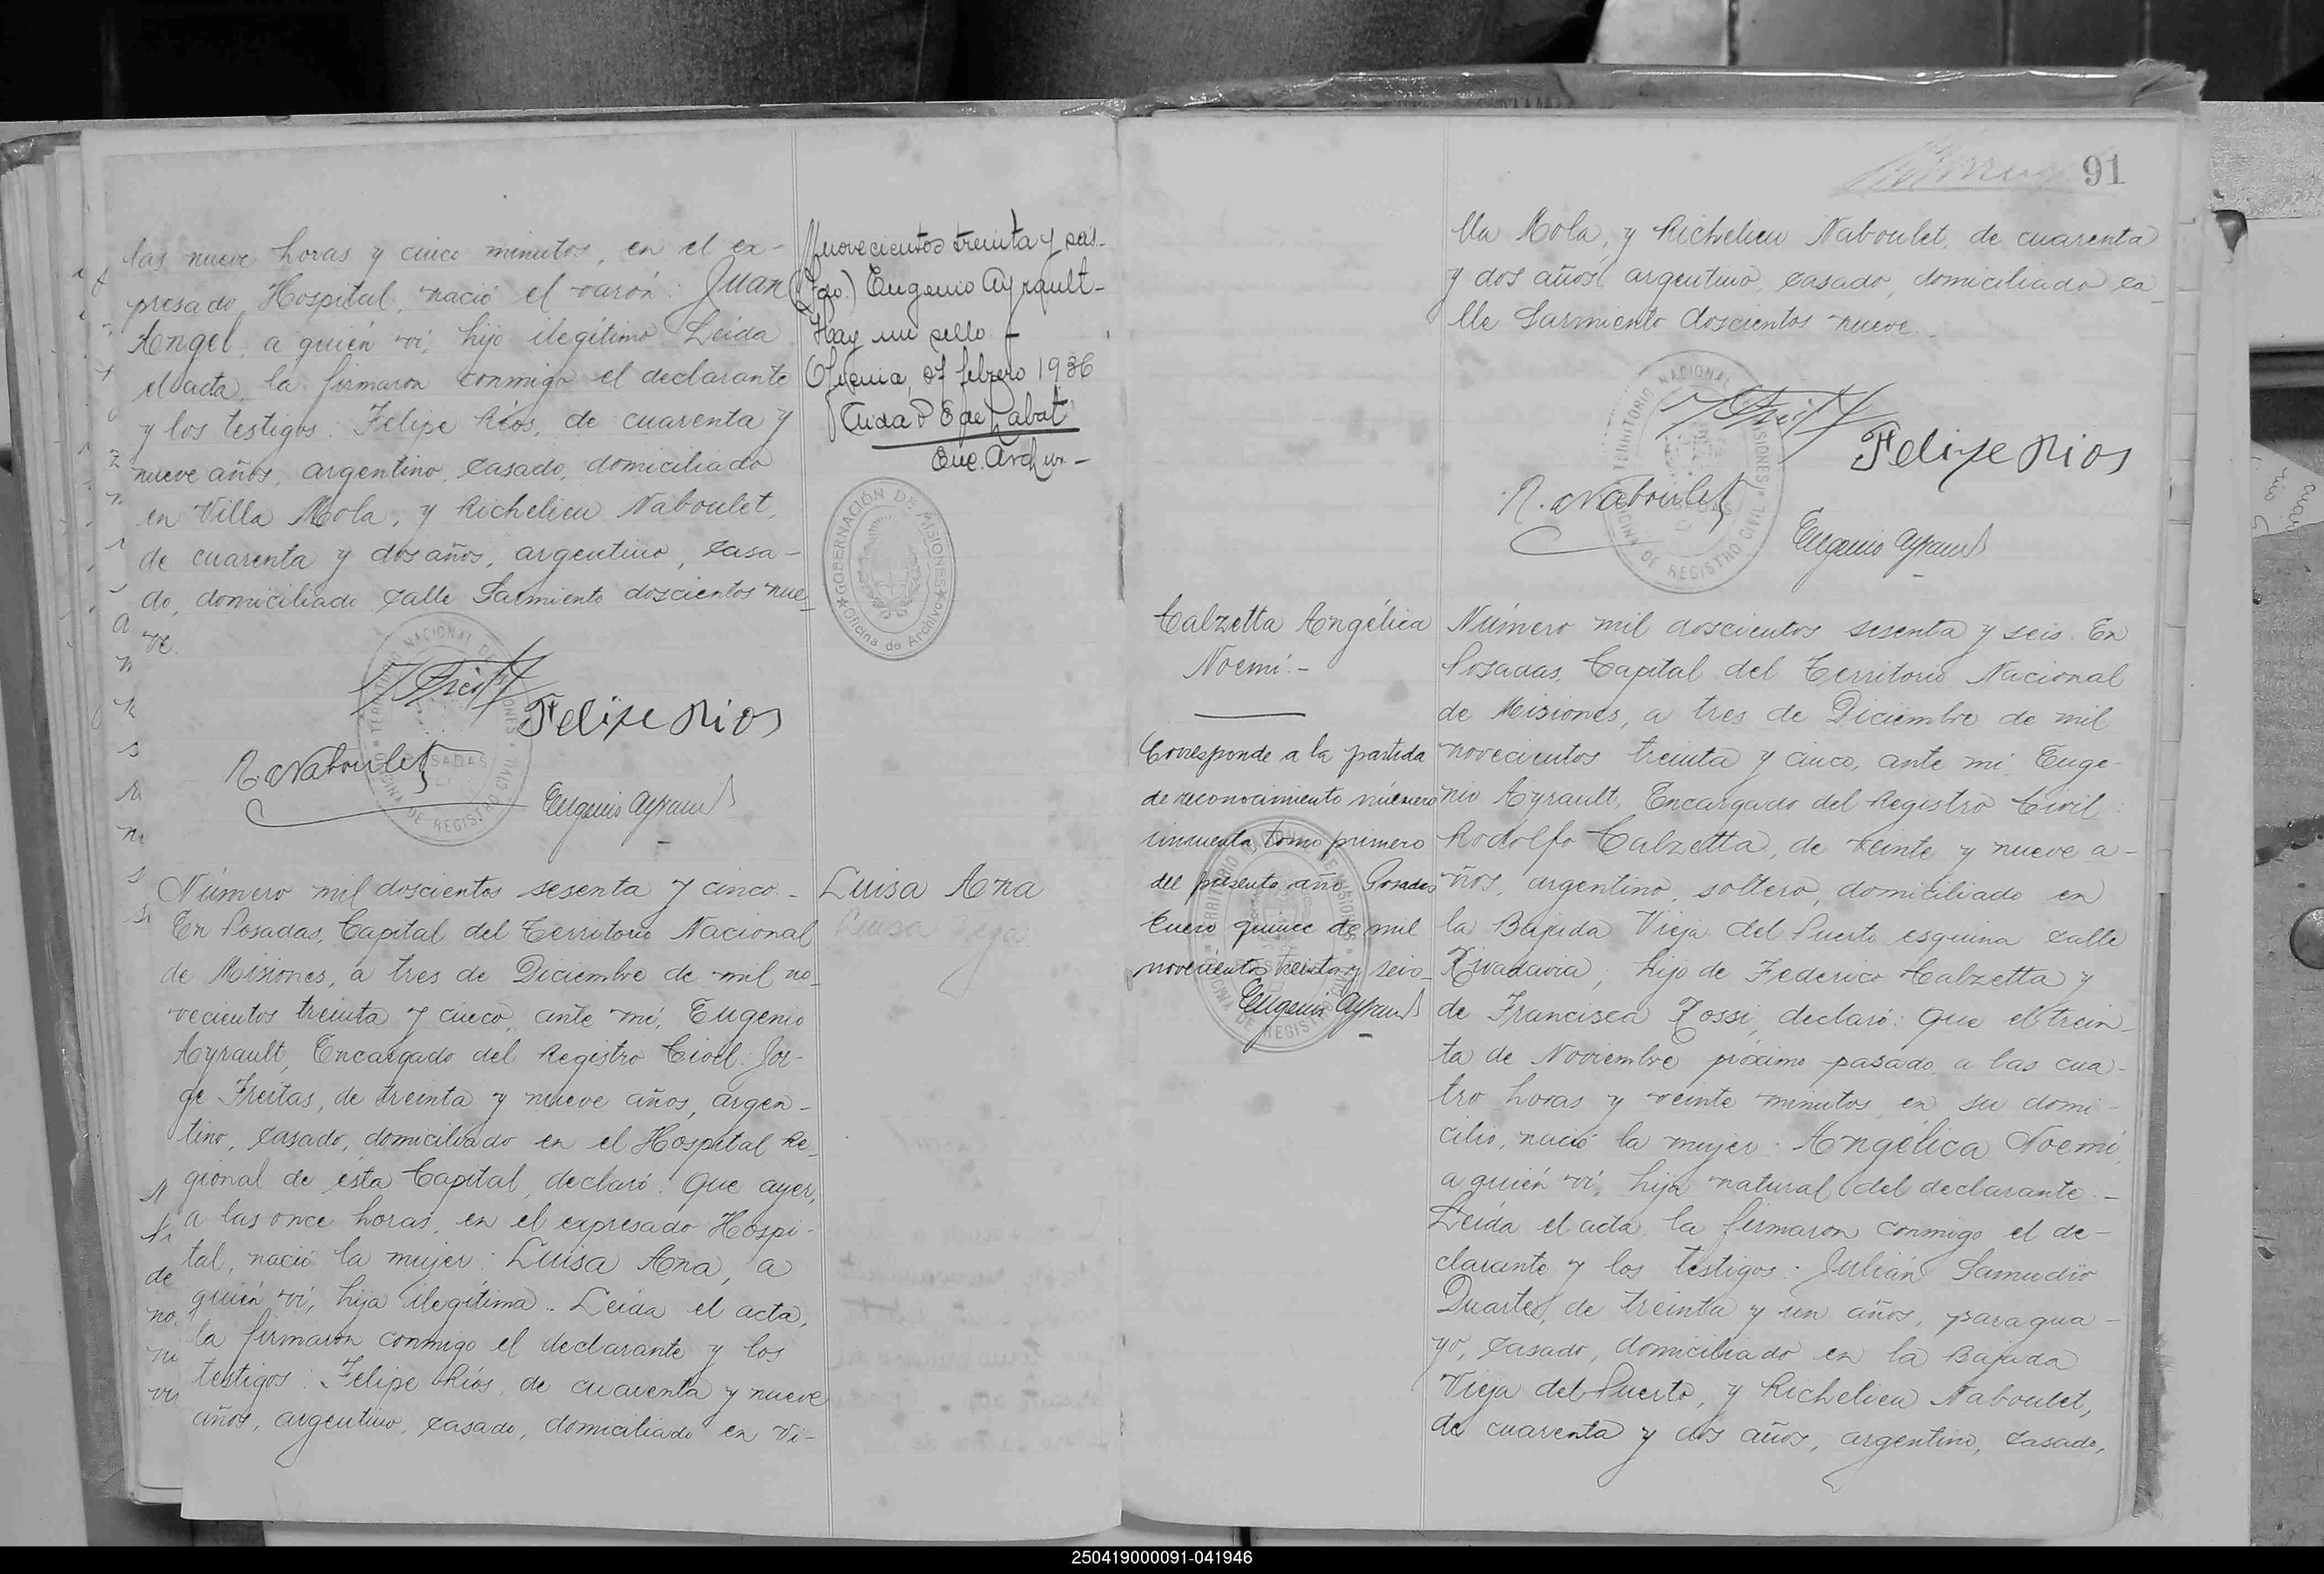 las nueve horas y cinco minutos, en el ex-
presado Hospital, nació el varón: Juan
Angel, a quién ví, hijo ilegítimo. Leída
el acta, la firmaron conmigo el declarante
y los testigos: Felipe Ríos, de cuarenta y
nueve años, argentino, casado, domiciliado
en Villa Mola, y Richelieu Naboulet,
de cuarenta y dos años, argentino, casa-
do, domiciliado calle Sarmiento doscientos nue-
ve.
Felipe Rios
R. Naboulet
Eugenio Ayrault
TERRITORIO NACIONAL DE MISIONES
OFICINA DE REGISTRO CIVIL
POSADAS
novecientos treinta y seis.-
(Fdo.) Eugenio Ayrault-
Hay un sello.-
Oficina, 07 febrero 1936
Enc. Archivo-
GOBERNACIÓN DE MISIONES
Oficina de Archivo
Número mil doscientos sesenta y cinco.-
En Posadas, Capital del Territorio Nacional
de Misiones, a tres de Diciembre de mil no-
vecientos treinta y cinco, ante mí, Eugenio
Ayrault, Encargado del Registro Civil: Jor-
ge Freitas, de treinta y nueve años, argen-
tino, casado, domiciliado en el Hospital Re-
gional de ésta Capital, declaró: Que ayer,
a las once horas, en el expresado Hospi-
tal, nació la mujer: Luisa Ana, a
quién ví, hija ilegítima.. Leída el acta,
la firmaron conmigo el declarante y los
testigos: Felipe Ríos, de cuarenta y nueve
años, argentino, casado, domiciliado en Vi-
Luisa Ana
91
lla Mola, y Richelieu Naboulet, de cuarenta
y dos años, argentino, casado, domiciliado ca-
lle Sarmiento doscientos nueve.
TERRITORIO NACIONAL DE MISIONES
OFICINA DE REGISTRO CIVIL
Felipe Rios
R. Naboulet
Eugenio Ayrault
Calzetta Angélica
Noemí.-
Corresponde a la partida
de reconocimiento número
cincuenta, tomo primero
del presente año. Posadas
Enero quince de mil
novecientos treinta y seis-
Eugenio Ayrault
Número mil doscientos sesenta y seis. En
Posadas, Capital del Territorio Nacional
de Misiones, a tres de Diciembre de mil
novecientos treinta y cinco, ante mí, Euge-
nio Ayrault, Encargado del Registro Civil:
Rodolfo Calzetta, de veinte y nueve a-
ños, argentino, soltero, domiciliado en
la Bajada Vieja del Puerto esquina calle
Rivadavia, hijo de Federico Calzetta y
de Francisca Rossi, declaró: Que el trein-
ta de Noviembre próximo pasado, a las cua-
tro horas y veinte minutos, en su domi-
cilio, nació la mujer: Angélica Noemí,
a quién ví, hija natural del declarante.-
Leída el acta, la firmaron conmigo el de-
clarante y los testigos: Julián Samudio
Duarte, de treinta y un años, paragua-
yo, casado, domiciliado en la Bajada
Vieja del Puerto, y Richelieu Naboulet,
de cuarenta y dos años, argentino, casado,
250419000091-041946